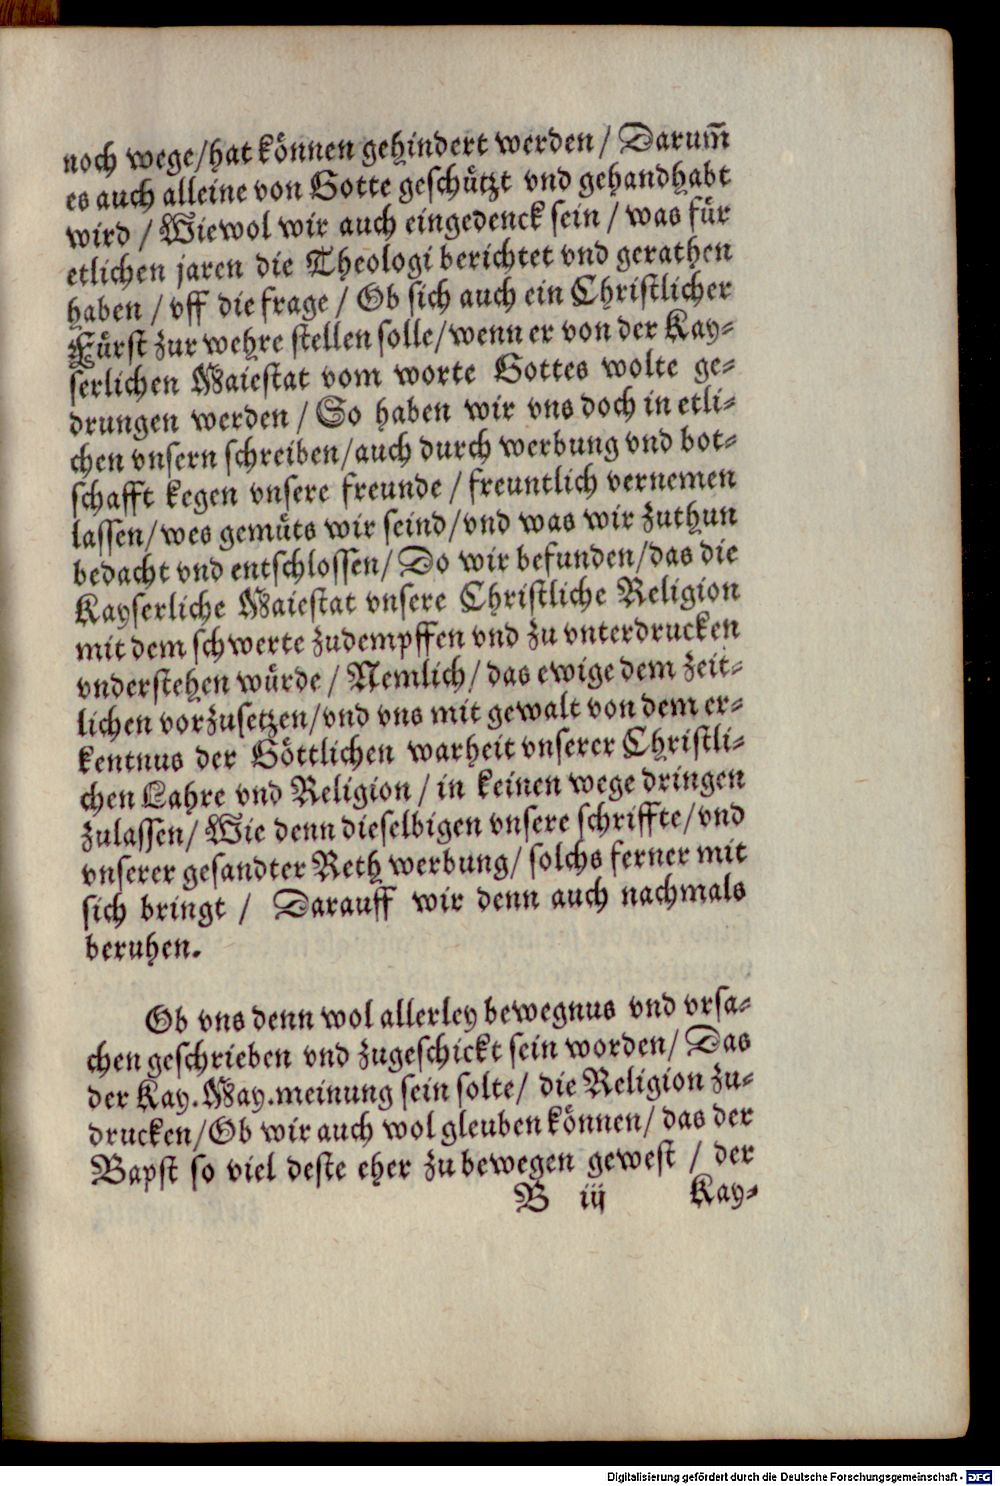 noch wege/hat können gehindert werden / Darum̃
es auch alleine von Gotte geschützt vnd gehandhabt
wird / Wiewol wir auch eingedenck sein / was für
etlichen jaren die Theologi berichtet vnd gerathen
haben / vff die frage / Ob sich auch ein Christlicher
Fürst zur wehre stellen solle/wenn er von der Kay-
serlichen Maiestat vom worte Gottes wolte ge-
drungen werden / So haben wir vns doch in etli-
chen vnsern schreiben/auch durch werbung vnd bot-
schafft kegen vnsere freunde / freuntlich vernemen
lassen/wes gemüts wir seind/vnd was wir zuthun
bedacht vnd entschlossen/ Do wir befunden/das die
Kayserliche Maiestat vnsere Christliche Religion
mit dem schwerte zudempffen vnd zu vnterdrucken
vnderstehen würde / Nemlich/ das ewige dem zeit-
lichen vorzusetzen/vnd vns mit gewalt von dem er-
kentnus der Göttlichen warheit vnserer Christli-
chen Lahre vnd Religion / in keinen wege dringen
zulassen/ Wie denn dieselbigen vnsere schriffte/vnd
vnserer gesandter Reth werbung/ solchs ferner mit
sich bringt / Darauff wir denn auch nachmals
beruhen.
Ob vns denn wol allerley bewegnus vnd vrsa-
chen geschrieben vnd zugeschickt sein worden/ Das
der Kay. May. meinung sein solte/ die Religion zu-
drucken/Ob wir auch wol gleuben können/ das der
Bapst so viel deste eher zu bewegen gewest / der
B iij Kay-
Digitalisierung gefördert durch die Deutsche Forschungsgemeinschaft - DFG